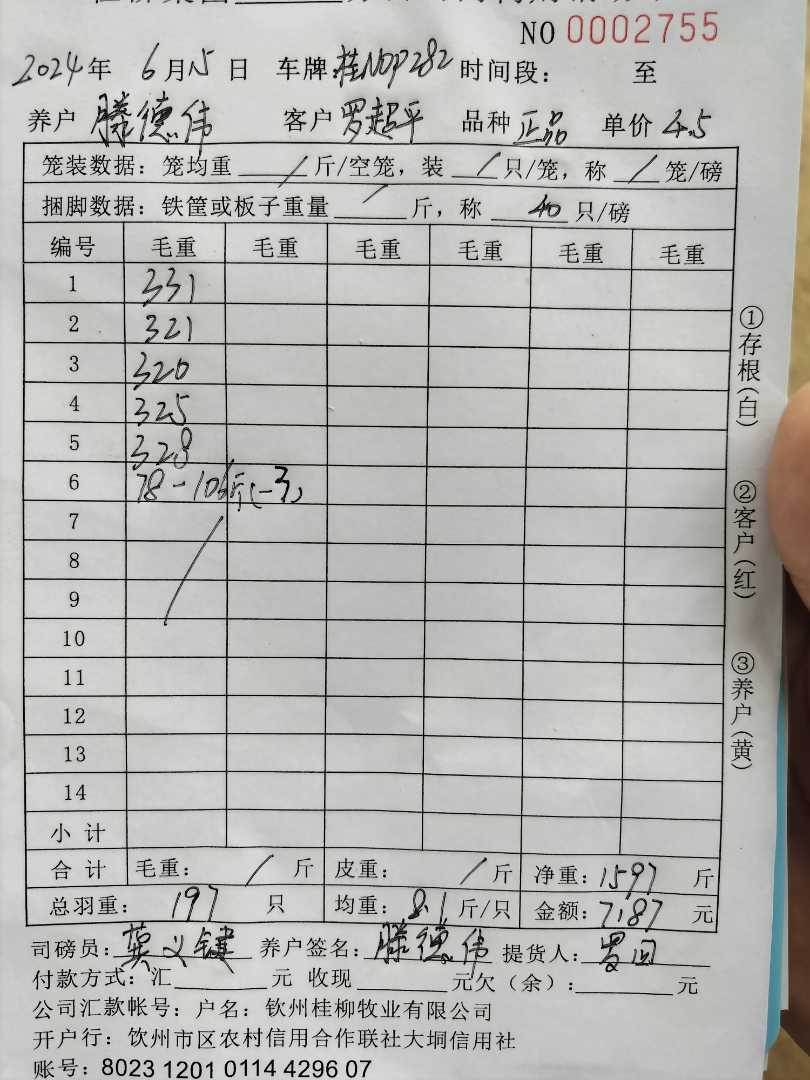 NO 0002755
2024年 6月15日 车牌:桂NDP282 时间段: 至
养户 滕德伟 客户 罗超平 品种 正品 单价 4.5
笼装数据: 笼均重 / 斤/空笼, 装 / 只/笼, 称 / 笼/磅
捆脚数据: 铁筐或板子重量 / 斤, 称 40 只/磅
编号 毛重 毛重 毛重 毛重 毛重 毛重
1 331
2 321
3 320
4 325
5 328
6 78-106斤(-3)
7
8
9
10
11
12
13
14
小计
合计 毛重: / 斤 皮重: / 斤 净重: 1597 斤
总羽重: 197 只 均重: 8.1 斤/只 金额: 7187 元
司磅员: 莫义键 养户签名: 滕德伟 提货人:
付款方式: 汇 元 收现 元欠(余): 元
公司汇款帐号: 户名: 钦州桂柳牧业有限公司
开户行: 饮州市区农村信用合作联社大垌信用社
账号: 8023 1201 0114 4296 07
①存根(白)
②客户(红)
③养户(黄)